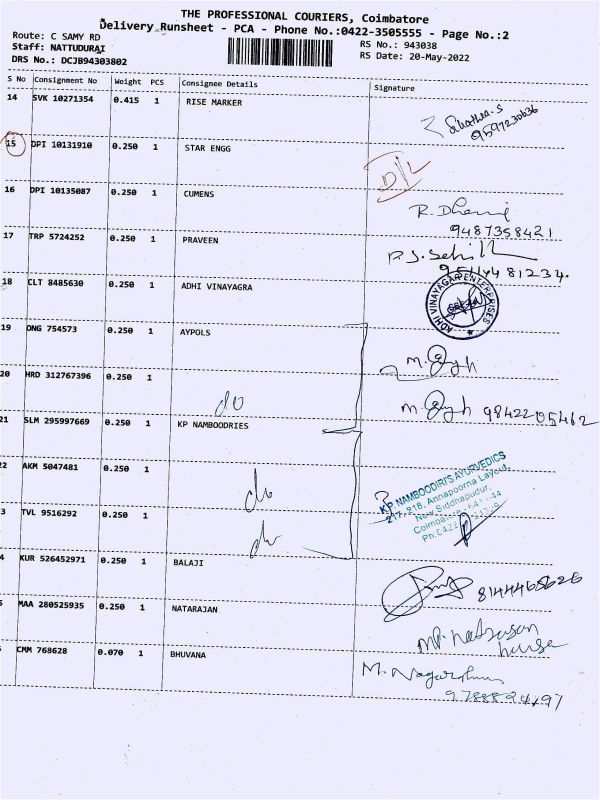 THE PROFESSIONAL COURIERS, Coimbatore
Delivery Runsheet - PCA - Phone No.:0422-3505555 - Page No.:2
Route: C SAMY RD
Staff: NATTUDURAI
DRS No.: DCJB94303802
RS No.: 943038
RS Date: 20-May-2022
S No Consignment No Weight PCS Consignee Details Signature
14 SVK 10271354 0.415 1 RISE MARKER
9597230636
15 DPI 10131910 0.250 1 STAR ENGG
D/L
16 DPI 10135087 0.250 1 CUMENS
R. Dhami
9487358421
17 TRP 5724252 0.250 1 PRAVEEN
18 CLT 8485630 0.250 1 ADHI VINAYAGRA
ADHI VINAYAGAR ENTERPRISES
19 ONG 754573 0.250 1 AYPOLS
20 HRD 312767396 0.250 1
do
9842205462
21 SLM 295997669 0.250 1 KP NAMBOODRIES
2 AKM 5047481 0.250 1
do
K.P. NAMBOODIRI'S AYURVEDICS
217-218, Annapoorna Layout,
New Siddhapudur,
3 TVL 9516292 0.250 1
do
4 KUR 526452971 0.250 1 BALAJI
8144465626
5 MAA 280525935 0.250 1 NATARAJAN
CMM 768628 0.070 1 BHUVANA